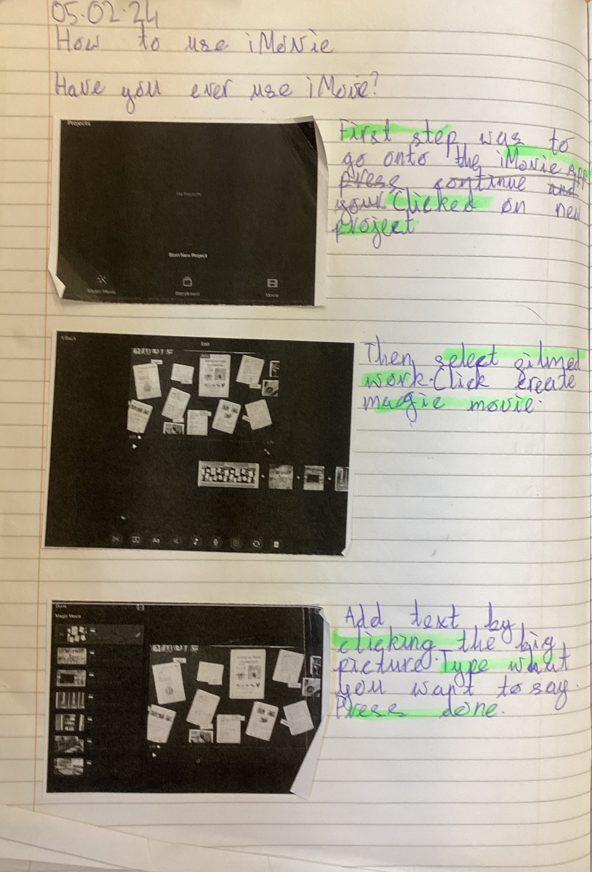 05.02.24
How to use iMovie
Have you ever use iMovie?
Projects
First step was to
go onto the iMovie App
press continue and
your Clicked on new
project
Start New Project
Magic Movie
Storyboard
Movie
Edit
Then select filmed
work. Click create
magic movie.
Aa
Magic Movie
Add text by
clicking the big
picture. Type want
you want to say.
Press done.